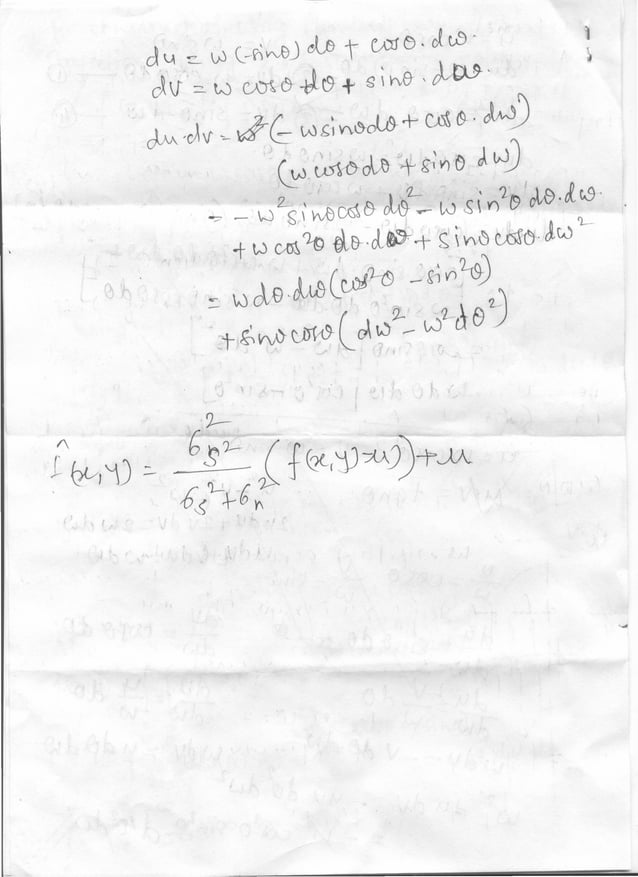 du = w(-sinθ)dθ + cosθ.dω.
dv = w cosθ dθ + sinθ.dω.
du.dv = (-wsinθdθ + cosθ.dω)
(wcosθdθ + sinθ dω)
= -w² sinθcosθ dθ² - w sin²θ dθ.dω.
+ w cos²θ dθ.dω + sinθcosθ.dω²
= wdθ.dω(cos²θ - sin²θ)
+ sinθcosθ(dω² - w²dθ²)
f̂(x,y) = 6s² / 6s²+6n² (f(x,y)-μ) + μ